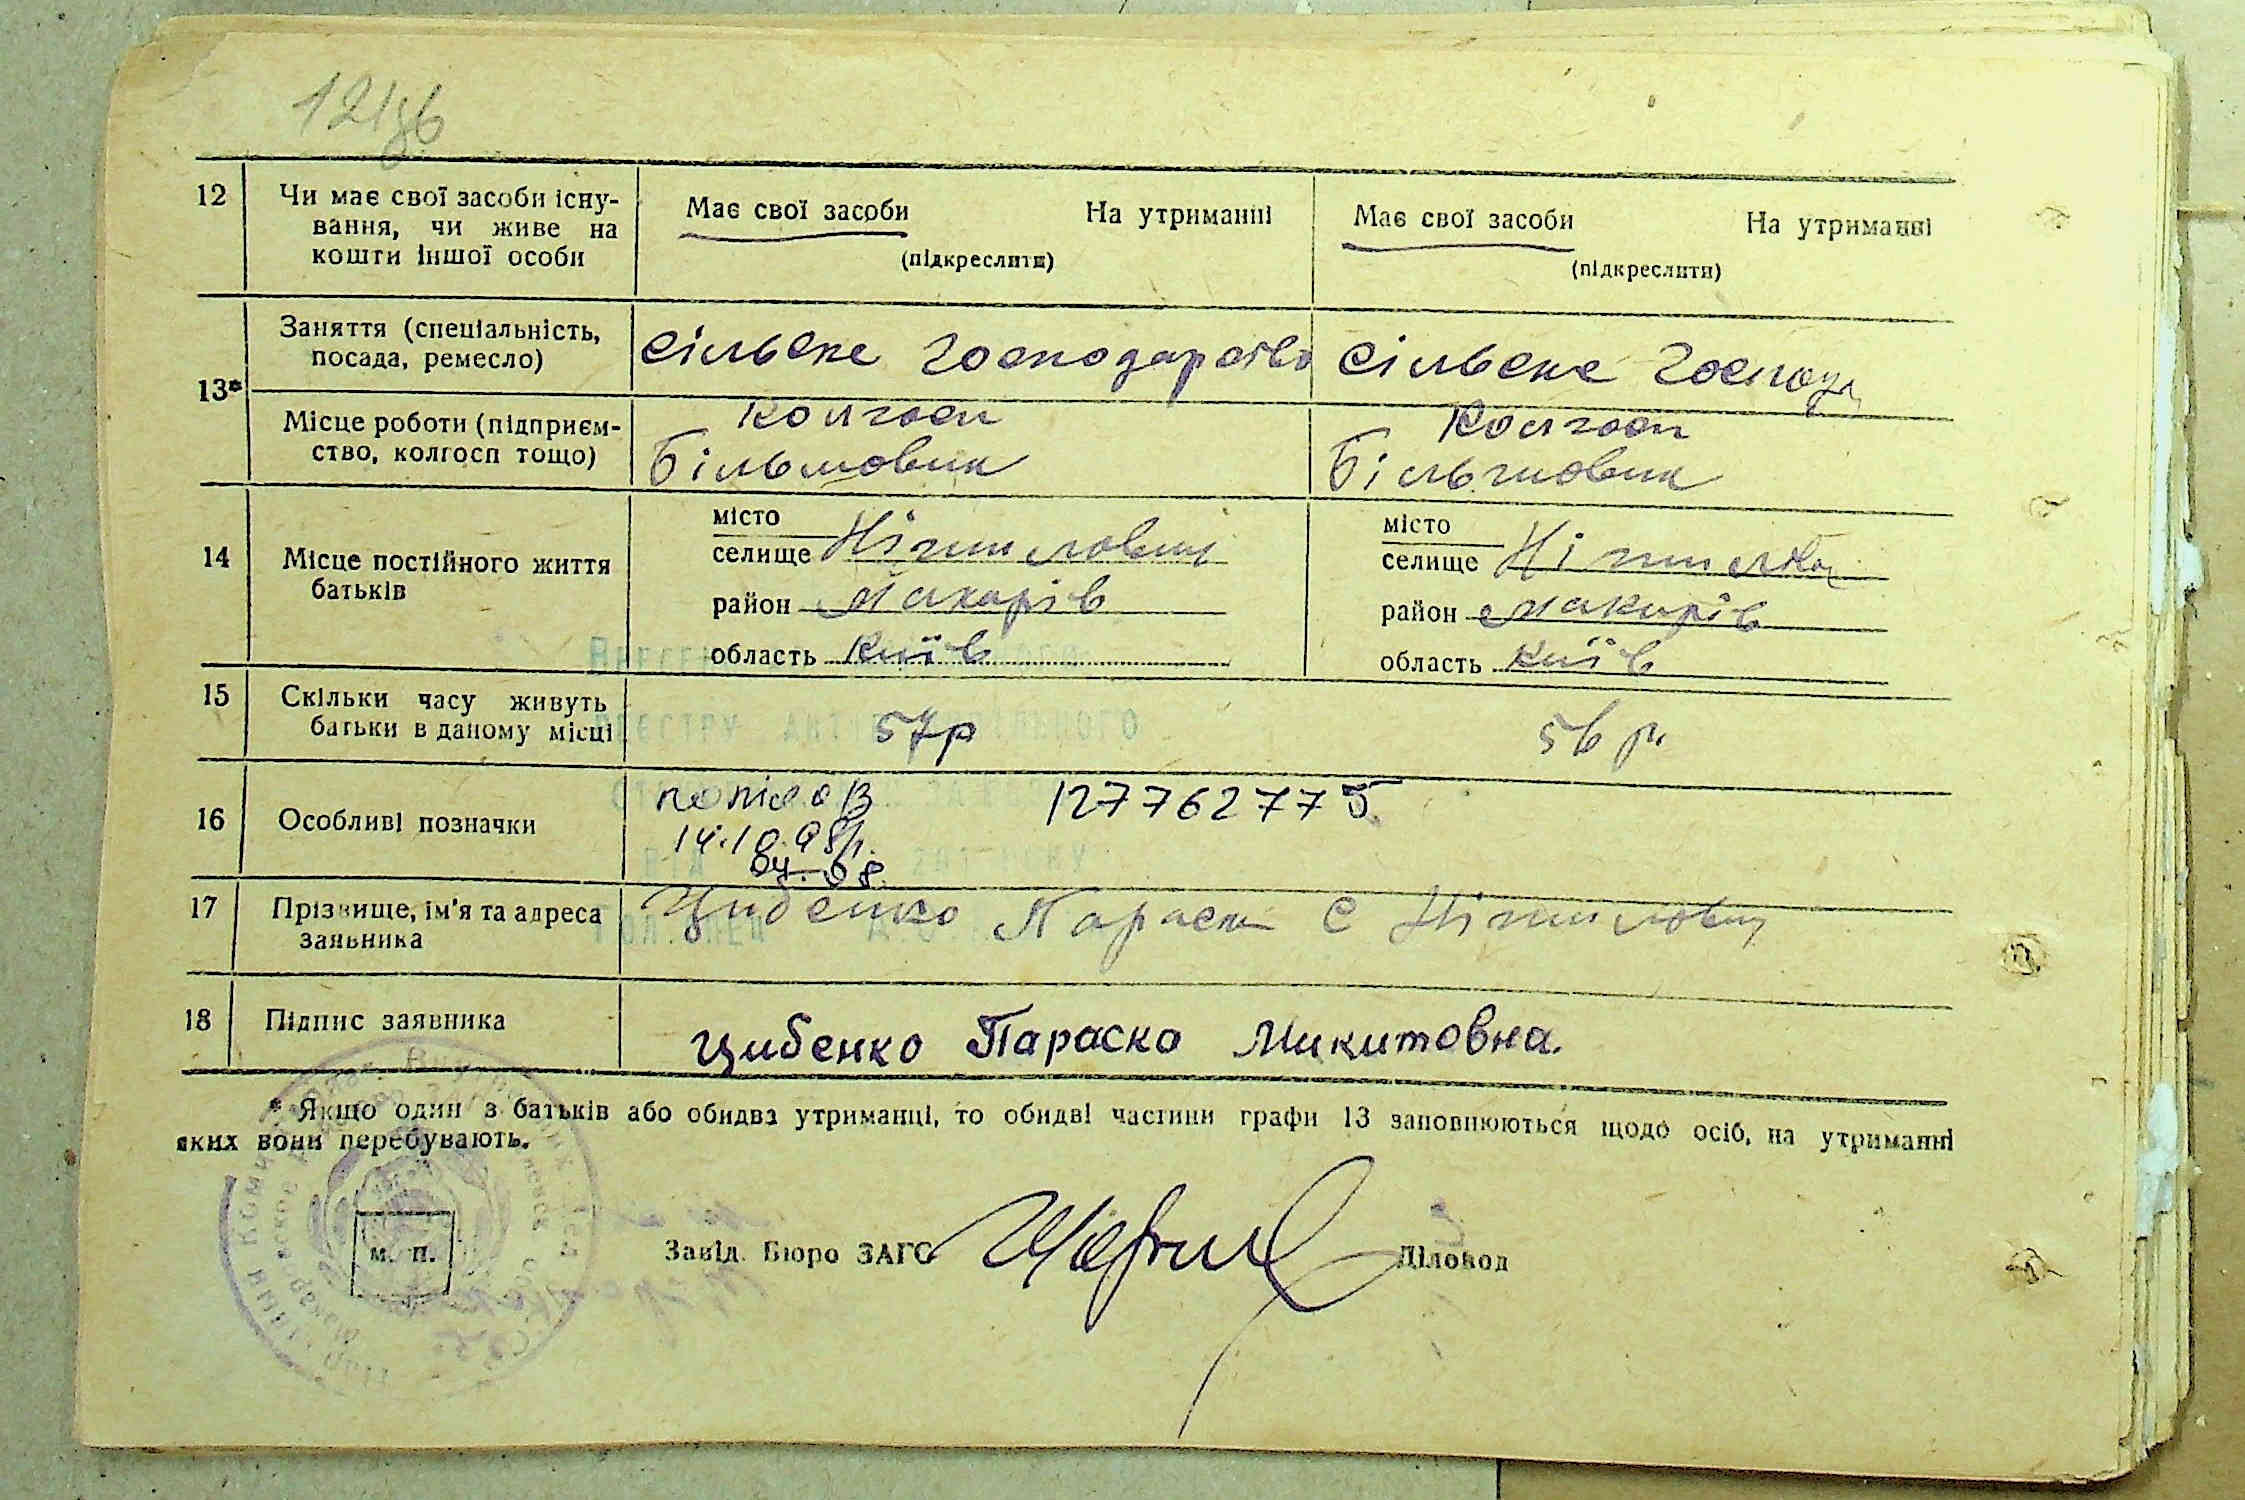 121зв
12 Чи має свої засоби існу- Має свої засоби На утриманні Має свої засоби На утриманні
вання, чи живе на
кошти іншої особи (підкреслити) (підкреслити)
13* Заняття (спеціальність, сільске господарство сільске господа
посада, ремесло)
Місце роботи (підприєм- колгосп колгосп
ство, колгосп тощо) Більшовик Більшовик
14 Місце постійного життя місто місто
батьків селище Ніжиловичі селище
район Макарів район Макарів
область Київ область Київ
15 Скільки часу живуть 57р 56 р.
батьки в даному місці
16 Особливі позначки 127762775
14.10.98р.
17 Прізвище, ім'я та адреса Цибенко Параска с Ніжиловичі
заявника
18 Підпис заявника Цибенко Параско Микитовна.
* Якщо один з батьків або обидва утриманці, то обидві частини графи 13 заповнюються щодо осіб, на утриманні
яких вони перебувають.
м. п. Завід. Бюро ЗАГС Діловод